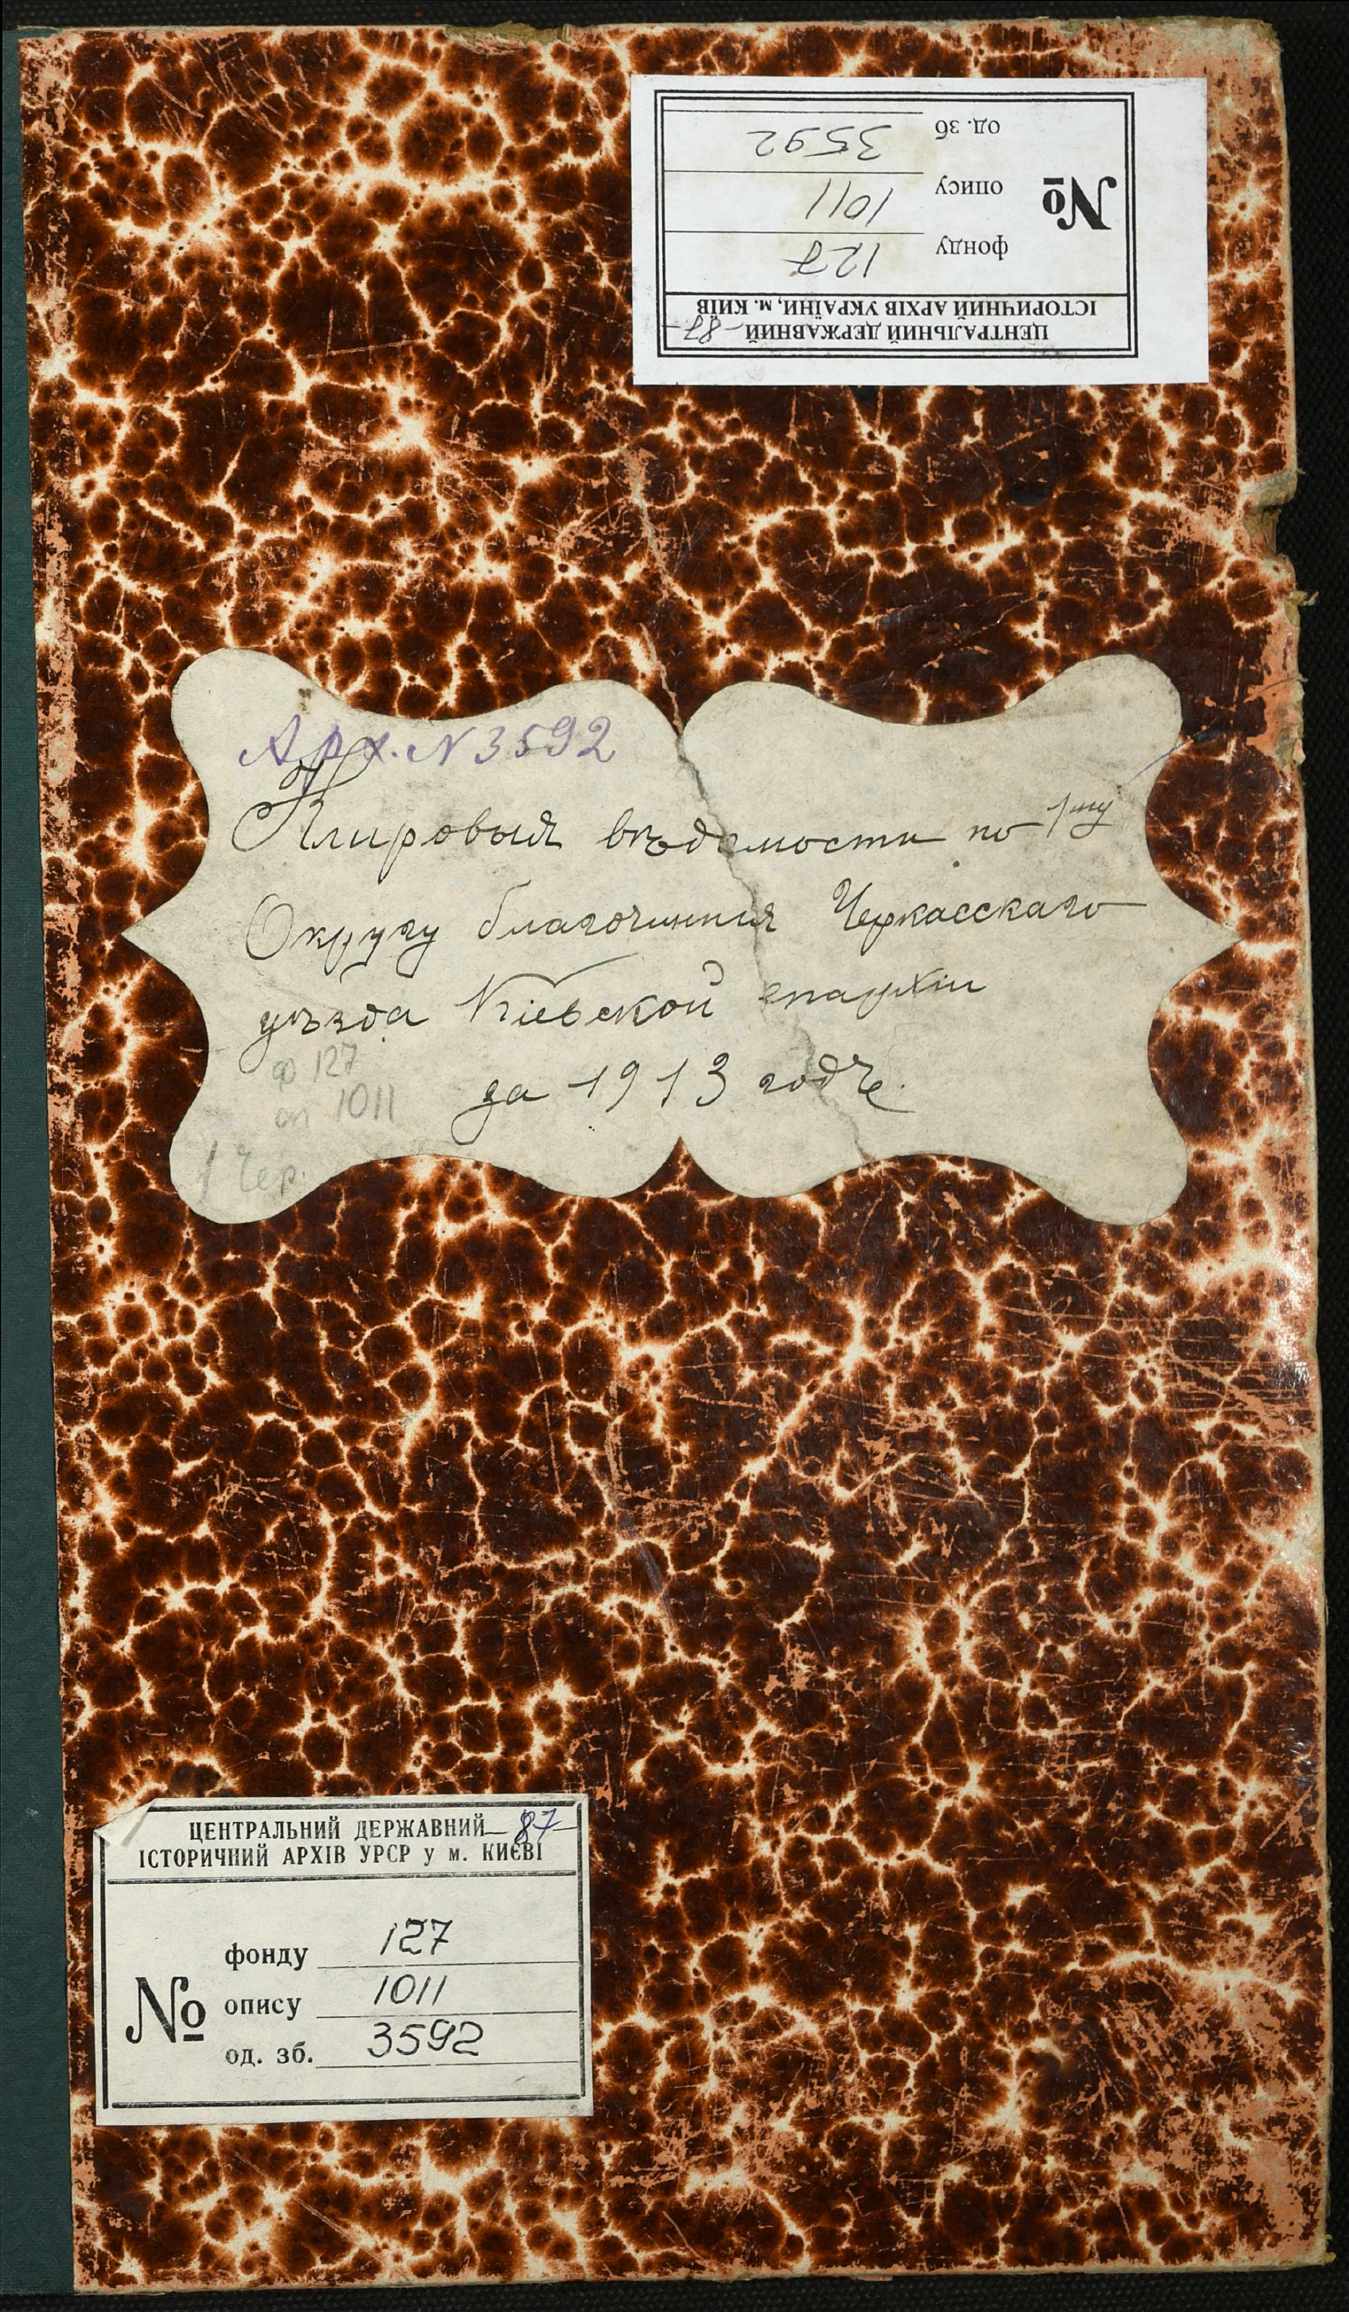 ЦЕНТРАЛЬНИЙ ДЕРЖАВНИЙ -87-
ІСТОРИЧНИЙ АРХІВ УКРАЇНИ, м. КИЇВ
№
фонду 127
опису 1011
од. зб 3592
Арх. N 3592
Клировыя вѣдомости по 1му
Округу благочинія Черкасскаго
уѣзда Кіевской епархіи
за 1913 годъ.
ф 127
оп 1011
1 Чер.
ЦЕНТРАЛЬНИЙ ДЕРЖАВНИЙ -87-
ІСТОРИЧНИЙ АРХІВ УРСР у м. КИЄВІ
№
фонду 127
опису 1011
од. зб. 3592